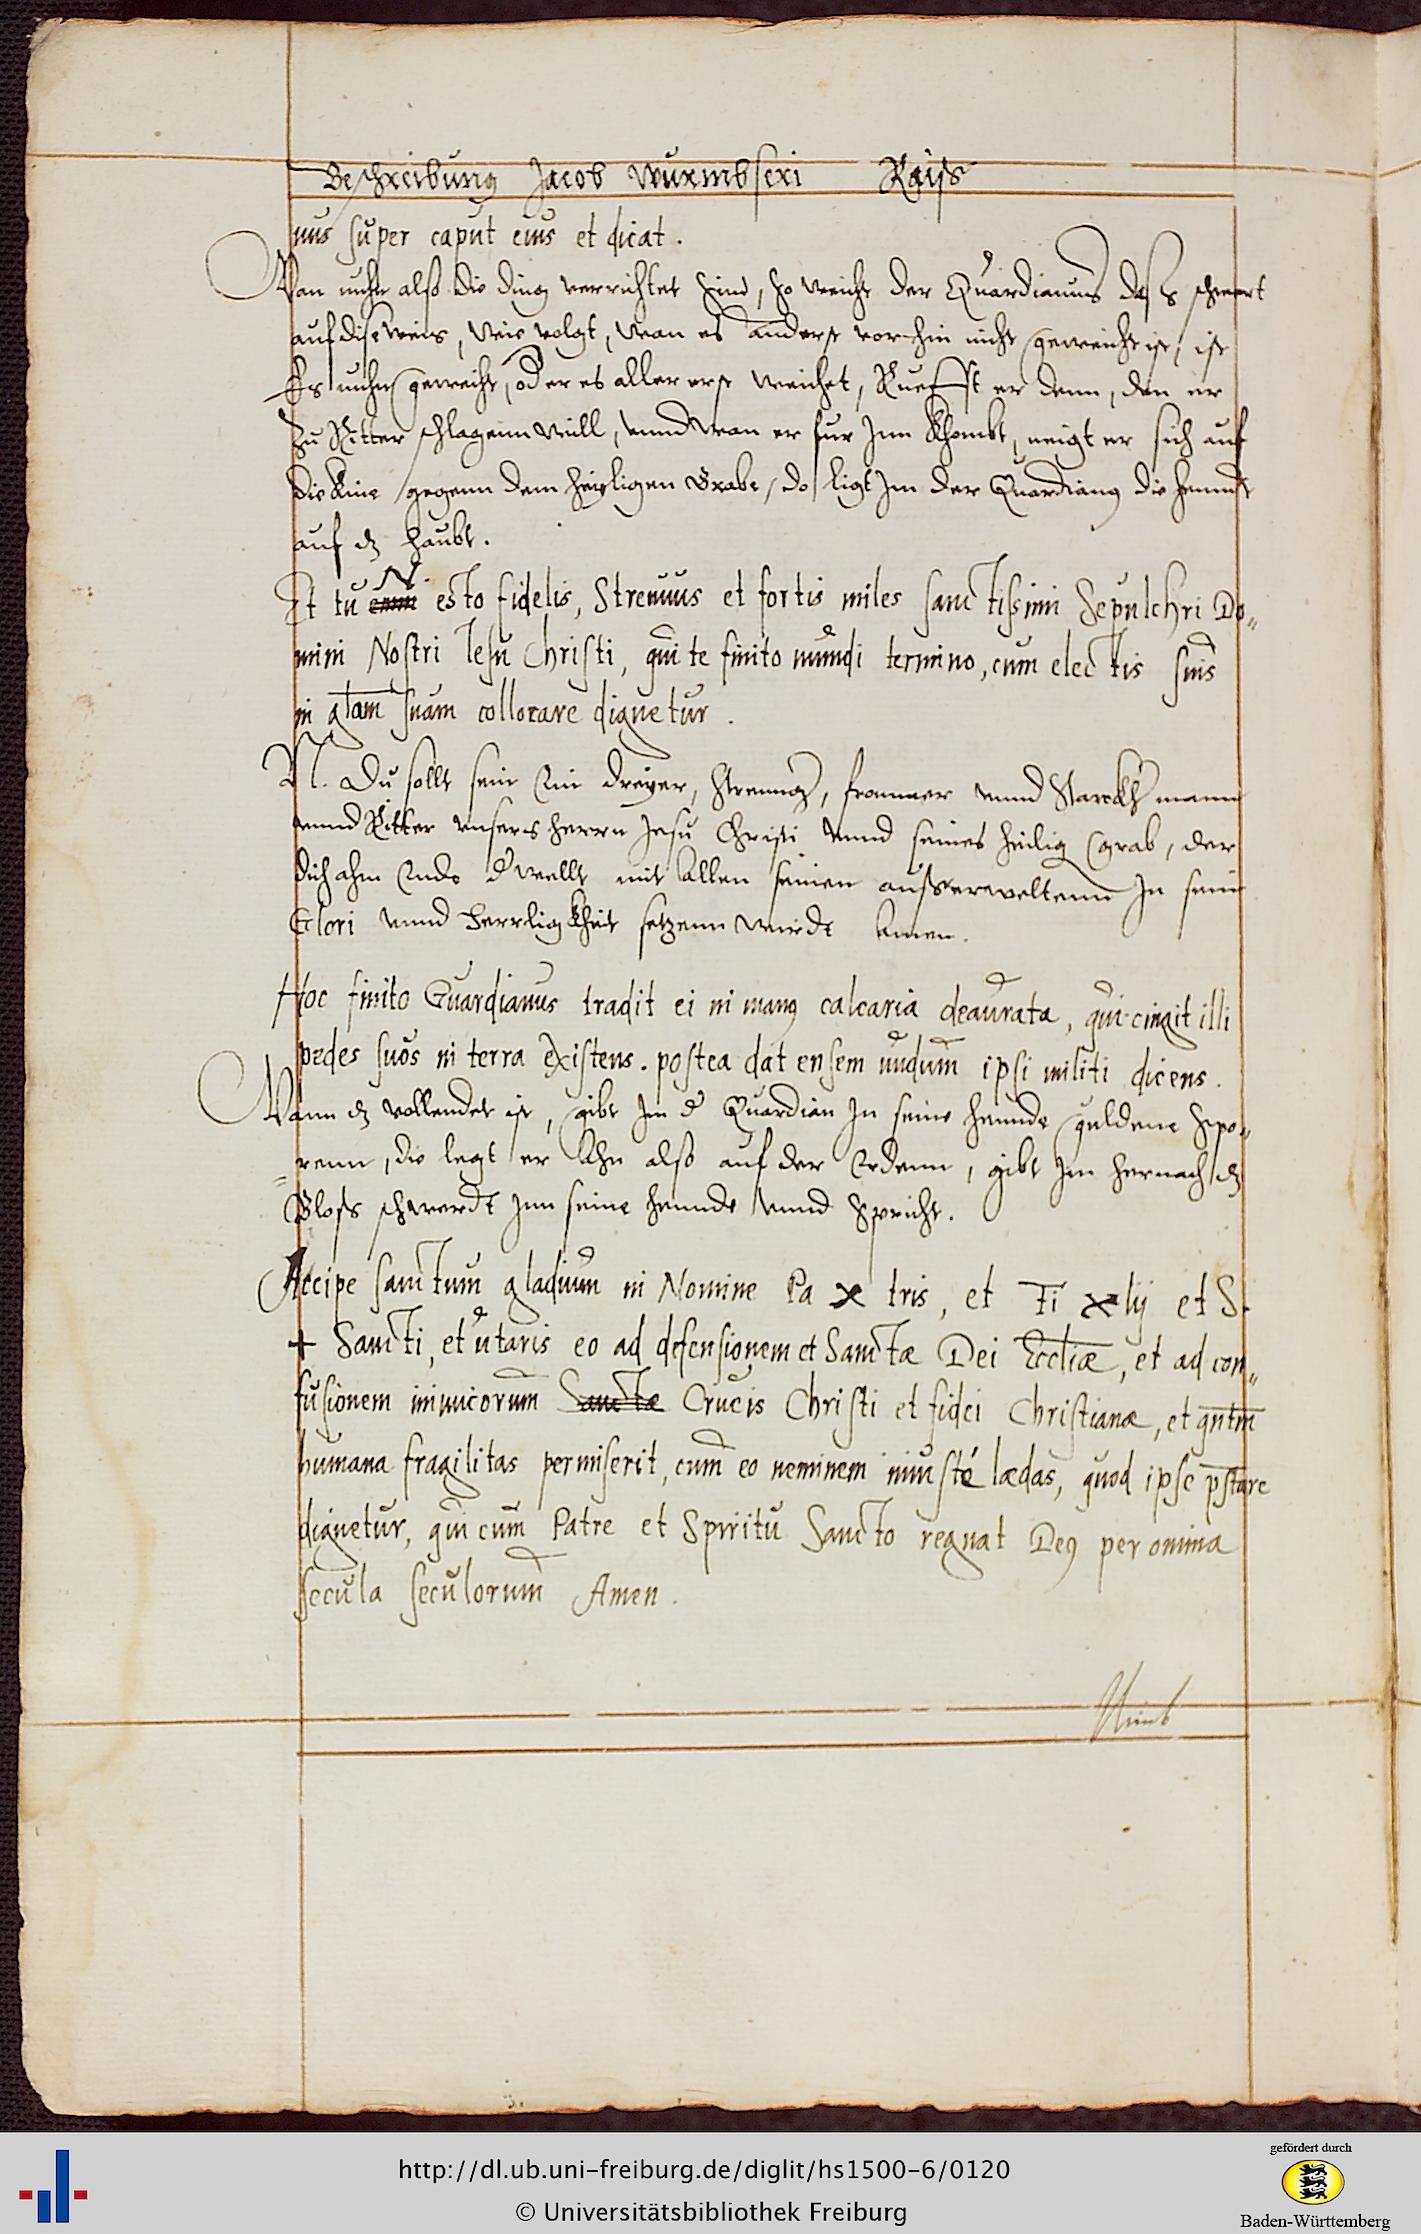 Beschreibung Jacob Wurmbseri Rayß
nus super caput eius et dicat.
Wan nuhn also die ding verrichtet sind, so weicht der Quardianus daß schwert
auf dise weis, wie volgt, wan es anderst vorhin nicht geweicht ist, ist
Es nuhn geweicht, oder es aller erst weichet, Ruefft er denn, den er
zu Ritter schlagenn will, unnd wan er fur Jnn khombt, neigt er sich auf
die knie gegenn dem heyligen Grabe, do ligt Jm der Quardianus die hennde
auf dz haubt.
N
Et tu enim esto fidelis, Strenuus et fortis miles sanctissimi Sepulchri Do„
mini Nostri Iesu Christi, qui te finito mundi termino, cum electis suis
in glam suam collocare dignetur.
N. Du sollt sein Ein dreyer, Strennger, frommer unnd Starckher mann
unnd Ritter unsers herrn Jesu Christi unnd seines heilig grab, der
dich ahm Ende der wellt mit allen seinen ausserweltenn Jn sein
Glori unnd herrligkheit setzenn wirdt Amen.
Hoc finito Guardianus tradit ei in manus calcaria deaurata, qui cingit illi
pedes suos in terra existens. postea dat ensem nudum ipsi militi dicens.
Wann dz vollendet ist, gibt Jm der Quardian Jn seine hennde guldene Spo„
renn, die legt er Ihn also auf der Erdenn, gibt Jm hernach dz
Bloss schwerdt Jnn seine hennde unnd Spricht.
Accipe sanctum gladium in Nomine Pa x tris, et Fi x lij et S.
+ Sancti, et utaris eo ad defensionem et Sanctæ Dei Eccliæ, et ad con„
fusionem inimicorum Sanctæ Crucis Christi et fidei Christianæ, et qntm
humana fragilitas permiserit, cum eo neminem iniusté lædas, quod ipse pstare
dignetur, qui cum Patre et Spiritu Sancto regnat Deus per omnia
secula seculorum Amen.
Nimb
http://dl.ub.uni-freiburg.de/diglit/hs1500-6/0120
© Universitätsbibliothek Freiburg
gefördert durch
Baden-Württemberg